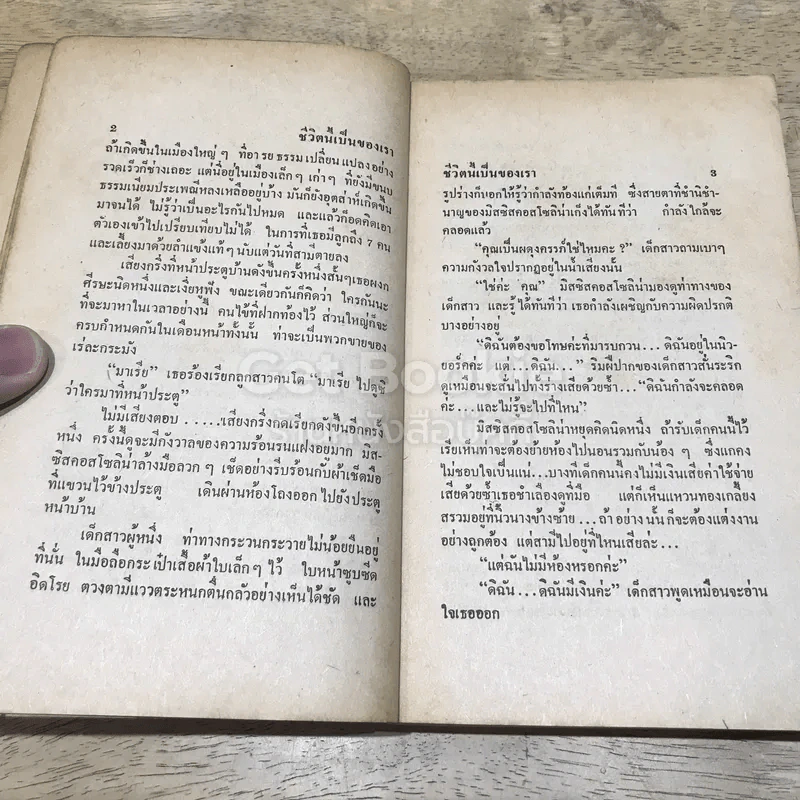 2
ชีวิตนี้เป็นของเรา
ถ้าเกิดขึ้นในเมืองใหญ่ๆ ที่อารยธรรมเปลี่ยนแปลงอย่าง
รวดเร็วก็ช่างเถอะ แต่นี่อยู่ในเมืองเล็กๆ เก่าๆ ที่ยังมีขนบ
ธรรมเนียมประเพณีหลงเหลืออยู่บ้าง มันก็ยังอุตส่าห์เกิดขึ้น
มาจนได้ ไม่รู้ว่าเป็นอะไรกันไปหมด และแล้วก็อดคิดเอา
ตัวเองเข้าไปเปรียบเทียบไม่ได้ ในการที่เธอมีลูกถึง 7 คน
และเลี้ยงมาด้วยลำแข้งแท้ๆ นับแต่วันที่สามีตายลง
เสียงกริ่งที่หน้าประตูบ้านดังขึ้นครั้งหนึ่งสั้นๆ เธอผงก
ศีรษะนิดหนึ่งและเงี่ยหูฟัง ขณะเดียวกันก็คิดว่า ใครกันนะ
ที่จะมาหาในเวลาอย่างนี้ คนไข้ที่ฝากท้องไว้ ส่วนใหญ่ก็จะ
ครบกำหนดกันในเดือนหน้าทั้งนั้น ท่าจะเป็นพวกขายของ
เร่ละกระมัง
“มาเรีย” เธอร้องเรียกลูกสาวคนโต “มาเรีย ไปดูซิ
ว่าใครมาที่หน้าประตู”
ไม่มีเสียงตอบ ......เสียงกริ่งกดเรียกดังขึ้นอีกครั้ง
หนึ่ง ครั้งนี้ดูจะมีกังวาลของความร้อนรนแฝงอยู่มาก มิส-
ซิสคอสโซลิน่าล้างมือลวกๆ เช็ดอย่างรีบร้อนกับผ้าเช็ดมือ
ที่แขวนไว้ข้างประตู เดินผ่านห้องโถงออกไปยังประตู
หน้าบ้าน
เด็กสาวผู้หนึ่ง ท่าทางกระวนกระวายไม่น้อยยืนอยู่
ที่นั่น ในมือถือกระเป๋าเสื้อผ้าใบเล็กๆ ไว้ ใบหน้าซูบซีด
อิดโรย ดวงตามีแววตระหนกตื่นกลัวอย่างเห็นได้ชัด และ
ชีวิตนี้เป็นของเรา
3
รูปร่างก็บอกให้รู้ว่ากำลังท้องแก่เต็มที่ ซึ่งสายตาที่ชำนิชำ-
นาญของมิสซิสคอสโซลิน่าเก็งได้ทันทีว่า กำลังใกล้จะ
คลอดแล้ว
“คุณเป็นผดุงครรภ์ใช่ไหมคะ ?” เด็กสาวถามเบาๆ
ความกังวลใจปรากฏอยู่ในน้ำเสียงนั้น
“ใช่ค่ะ คุณ” มิสซิสคอสโซลิน่ามองดูท่าทางของ
เด็กสาว และรู้ได้ทันทีว่า เธอกำลังเผชิญกับความผิดปรกติ
บางอย่างอยู่
“ดิฉันต้องขอโทษค่ะที่มารบกวน... ดิฉันอยู่ในนิว-
ยอร์คค่ะ แต่...ดิฉัน...” ริมฝีปากของเด็กสาวสั่นระริก
ดูเหมือนจะสั่นไปทั้งร่างเสียด้วยซ้ำ...“ดิฉันกำลังจะคลอด
ค่ะ...และไม่รู้จะไปที่ไหน”
มิสซิสคอสโซลิน่าหยุดคิดนิดหนึ่ง ถ้ารับเด็กคนนี้ไว้
เรียเห็นท่าจะต้องย้ายห้องไปนอนรวมกับน้องๆ ซึ่งแกคง
ไม่ชอบใจเป็นแน่...บางทีเด็กคนนี้คงไม่มีเงินเสียค่าใช้จ่าย
เสียด้วยซ้ำ เธอชำเลืองดูที่มือ แต่ก็เห็นแหวนทองเกลี้ยง
สรวมอยู่ที่นิ้วนางข้างซ้าย...ถ้าอย่างนั้นก็จะต้องแต่งงาน
อย่างถูกต้อง แต่สามีไปอยู่ที่ไหนเสียล่ะ...
“แต่ฉันไม่มีห้องหรอกค่ะ”
“ดิฉัน...ดิฉันมีเงินค่ะ” เด็กสาวพูดเหมือนจะอ่าน
ใจเธอออก